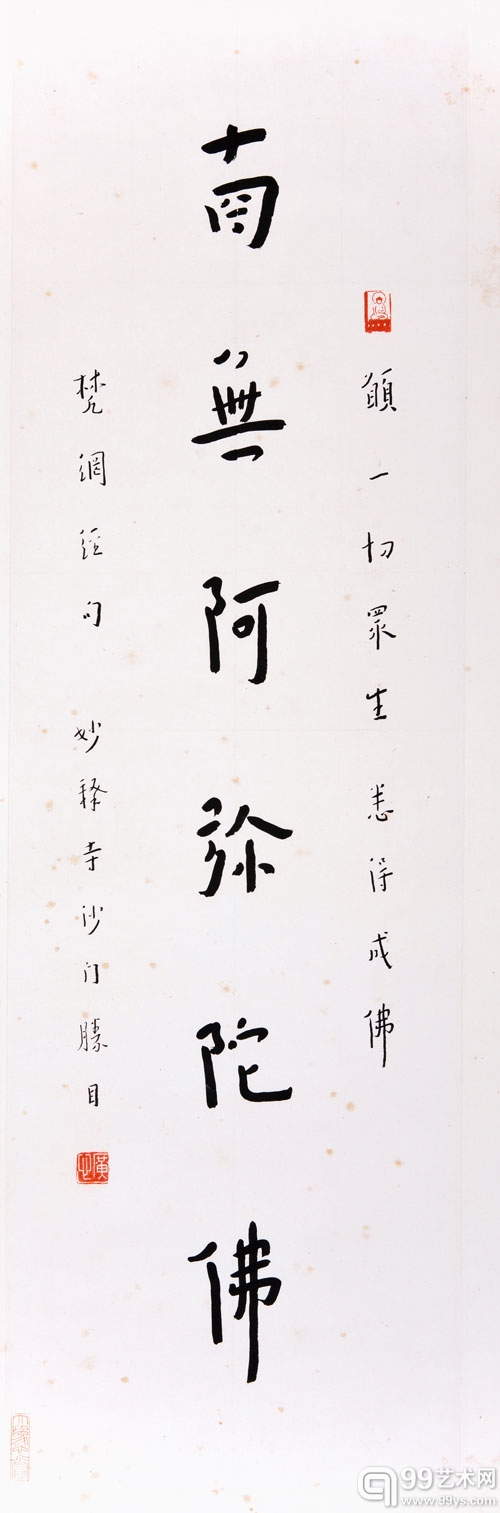 願一切眾生悉得成佛
南無阿弥陀佛
梵網經句 妙釋寺沙门勝目
99艺术网
www.99ys.com